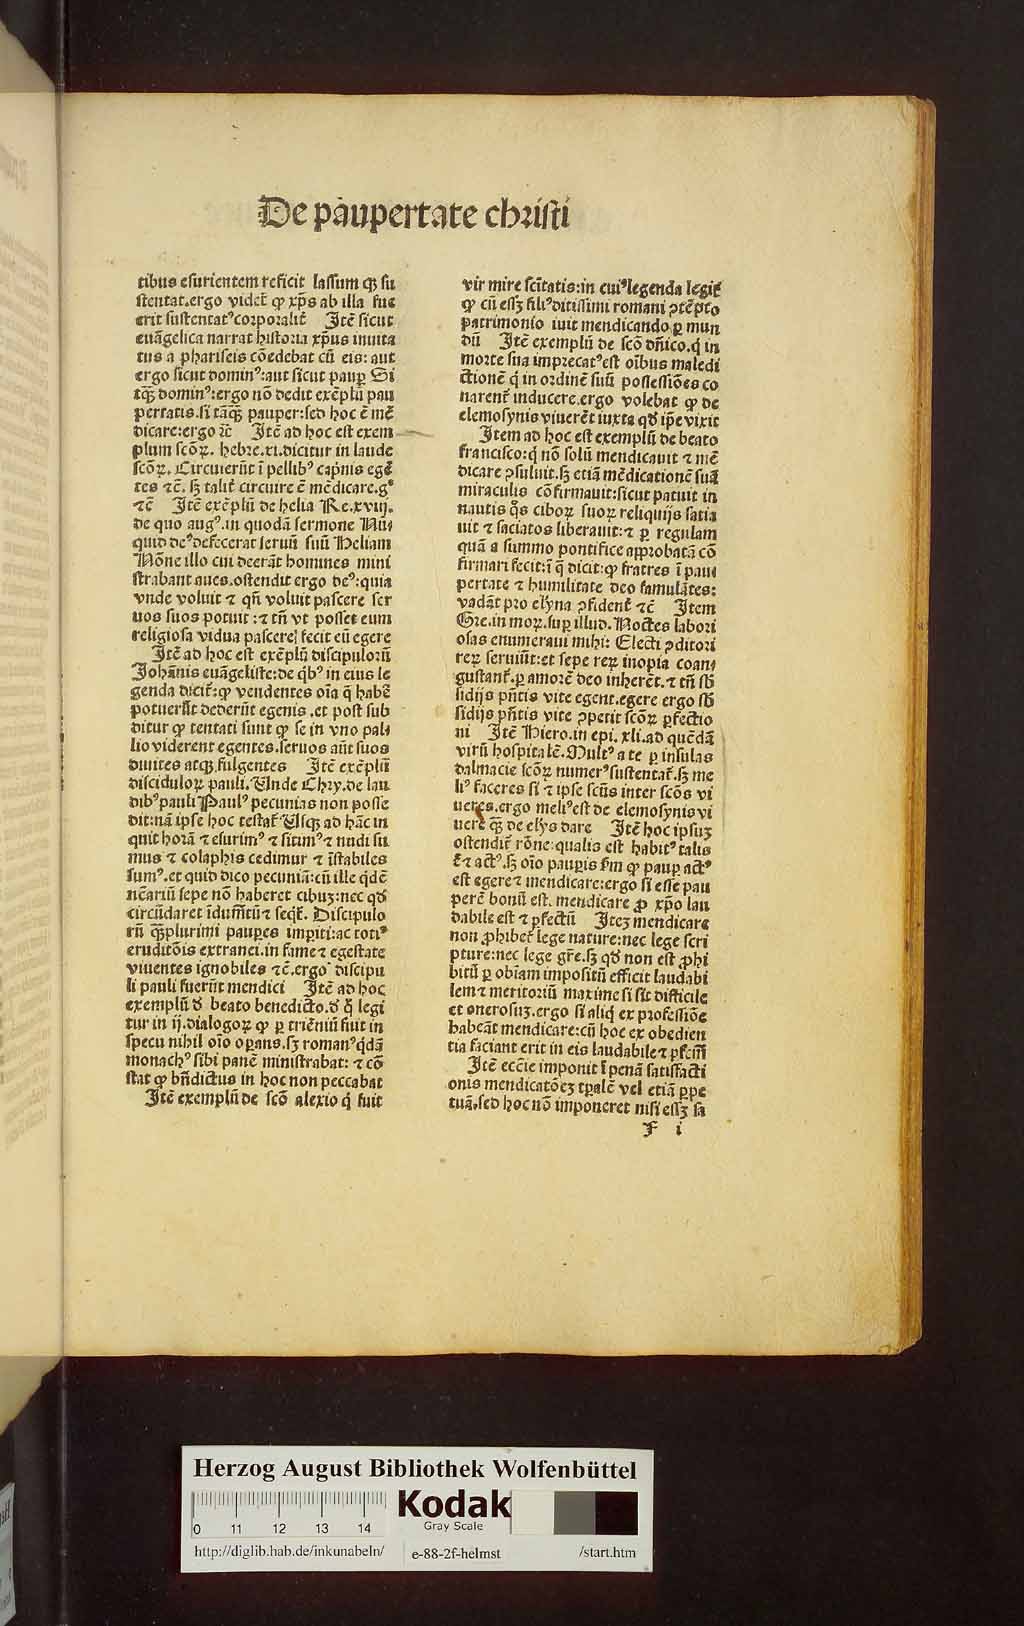 De paupertate christi
tibus esurientem reficit lassum qꝫ su
stentat.ergo videt᷑ ꝙ xp̄s ab illa fue
erit sustentatꝰcorporalit᷑ Itē sicut
euāgelica narrat historia xp̄us inuita
tus a phariseis cōedebat cū eis: aut
ergo sicut dominꝰ:aut sicut paup̄ Si
tqꝫ̄ dominꝰ:ergo nō dedit exēplū pau
pertatis.si tāqꝫ̄ pauper:sed hoc ē mē
dicare:ergo ⁊c̄ Itē ad hoc est exem
plum scōꝝ. hebre.xi.dicitur in laude
scōꝝ. Circuierūt ī pellibꝰ cap̄nis egē
tes ⁊c̄. sꝫ talit᷑ circuire ē mēdicare.gͦ
⁊c̄ Itē exēplū de helia Re.xviij.
de quo augꝰ.in quodā sermone Nū
quid deꝰdefecerat seruū suū Heliam
Nōne illo cui deerāt homines mini
strabant aues.ostendit ergo deꝰ:quia
vnde voluit ⁊ qn̄ voluit pascere ser
uos suos potuit :⁊ tn̄ vt posset eum
religiosa vidua pascere] fecit eū egere
Itē ad hoc est exēplū discipuloꝛū
Johānis euāgeliste:de q̇bꝰ in eius le
genda dicit᷑:ꝙ vendentes oīa q̄ habē
potuerūt dederūt egenis .et post sub
ditur ꝙ tentati sunt ꝙ se in vno pal
lio viderent egentes.seruos aūt suos
diuites atqꝫ fulgentes Itē exēplū
discidulor̄ pauli. Unde Chry.de lau
dibꝰpauli Paulꝰ pecunias non posse
dit:nā ipse hoc testat᷑ Usqꝫ ad hāc in
quit horā ⁊ esurimꝰ ⁊ sitimꝰ⁊ nudi su
mus ⁊ colaphis cedimur ⁊ īstabiles
sumꝰ.et quid dico pecuniā:cū ille q̇dē
nc̄ariū sepe nō haberet cibuꝫ:nec qd̄
circūdaret īdum̄tū⁊ seqt᷑. Discipulo
rū qꝫ̄plurimi paup̲es imp̲iti:ac totiꝰ
eruditōis extranei.in fame⁊ egestate
viuentes ignobiles ⁊c̄.ergo discipu
li pauli fuerūt mendici Itē ad hoc
exemplū d̄ beato benedicto.d̄ q̊ legi
tur in ij.dialogoꝝ ꝙ p̲ triēniū fuit in
specu nihil oīo op̲ans.sꝫ romanꝰq̇dā
monachꝰ sibi panē ministrabat: ⁊ cō
stat ꝙ bn̄dictus in hoc non peccabat
Itē exemplū de scō alexio q̇ fuit
vir mire scītatis:in cuiꝰlegenda legit᷑
ꝙ cū essꝫ filiꝰditissimi romani ꝯtēpto
patrimonio iuit mendicando p̲ mun
dū Itē exemplū de scō dn̄ico.q̇ in
morte sua imprecatꝰest oībus maledi
ctionē q̇ in ordinē suū possessiōes co
narent᷑ inducere.ergo volebat ꝙ de
elemosynis viuerēt iuxta qd̄ ip̄e vixit
Item ad hoc est exemplū de beato
francisco:q̇ nō solū mendicauit ⁊ mē
dicare ꝯsuluit.sꝫ etiā mēdicationē suā
miraculis cōfirmauit:sicut patuit in
nautis q̊s ciboꝝ suoꝝ reliquijs satia
uit ⁊ saciatos liberauit:⁊ p̲ regulam
quā a summo pontifice approbatā cō
firmari fecit:ī q̄ dicit:ꝙ fratres ī pau
pertate ⁊ humilitate deo famulātes:
vadāt pro elyna ꝯfident᷑ ⁊c̄ Item
Gre.in moꝝ.sup̲ illud. Noctes labori
osas enumeraui mihi: Electi ꝯditori
reꝝ seruiūt:et sepe reꝝ inopia coan
gustant᷑.p̲ amorē deo inherēt.⁊ tn̄ sb̄
sidijs pn̄tis vite egent.egere ergo sb̄
sidijs pn̄tis vite ꝯpetit scōꝝ p̲fectio
ni Itē Hiero.in epi. xli.ad quēdā
virū hospitalē.Multꝰ a te p̲ insulas
dalmacie scōꝝ numerꝰsustentat᷑.sꝫ me
liꝰ faceres si ⁊ ipse scūs inter scōs vi
ueres.ergo meliꝰest de elemosynis vi
uere qꝫ̄ de elys dare Itē hoc ipsuꝫ
ostendit᷑ rōne:qualis est habitꝰ talis
ē⁊ actꝰ.sꝫ oīo paup̲is s̄m ꝙ paup̲ actꝰ
est egere⁊ mendicare:ergo si esse pau
perē bonū est. mendicare ꝓ xp̄o lau
dabile est ⁊ p̲fectū Iteꝫ mendicare
non ꝓhibet᷑ lege nature:nec lege scri
pture:nec lege gr̄e.sꝫ qd̄ non est ꝓhi
bitū p̲ obīam impositū efficit laudabi
lem⁊ meritoriū maxime si sit difficile
et onerosuꝫ.ergo si aliq̇ ex professiōe
habeāt mendicare:cū hoc ex obedien
tia faciant erit in eis laudabile⁊ p̲fcm̄
Itē eccīe imponit ī penā satisfacti
onis mendicatōeꝫ tp̲alē vel etiā p̲pe
tuā.sed hoc nō imponeret nisi essꝫ sa
F i
Herzog August Bibliothek Wolfenbüttel
0 11 12 13 14
Kodak
Gray Scale
http://diglib.hab.de/inkunabeln/ e-88-2f-helmst /start.htm